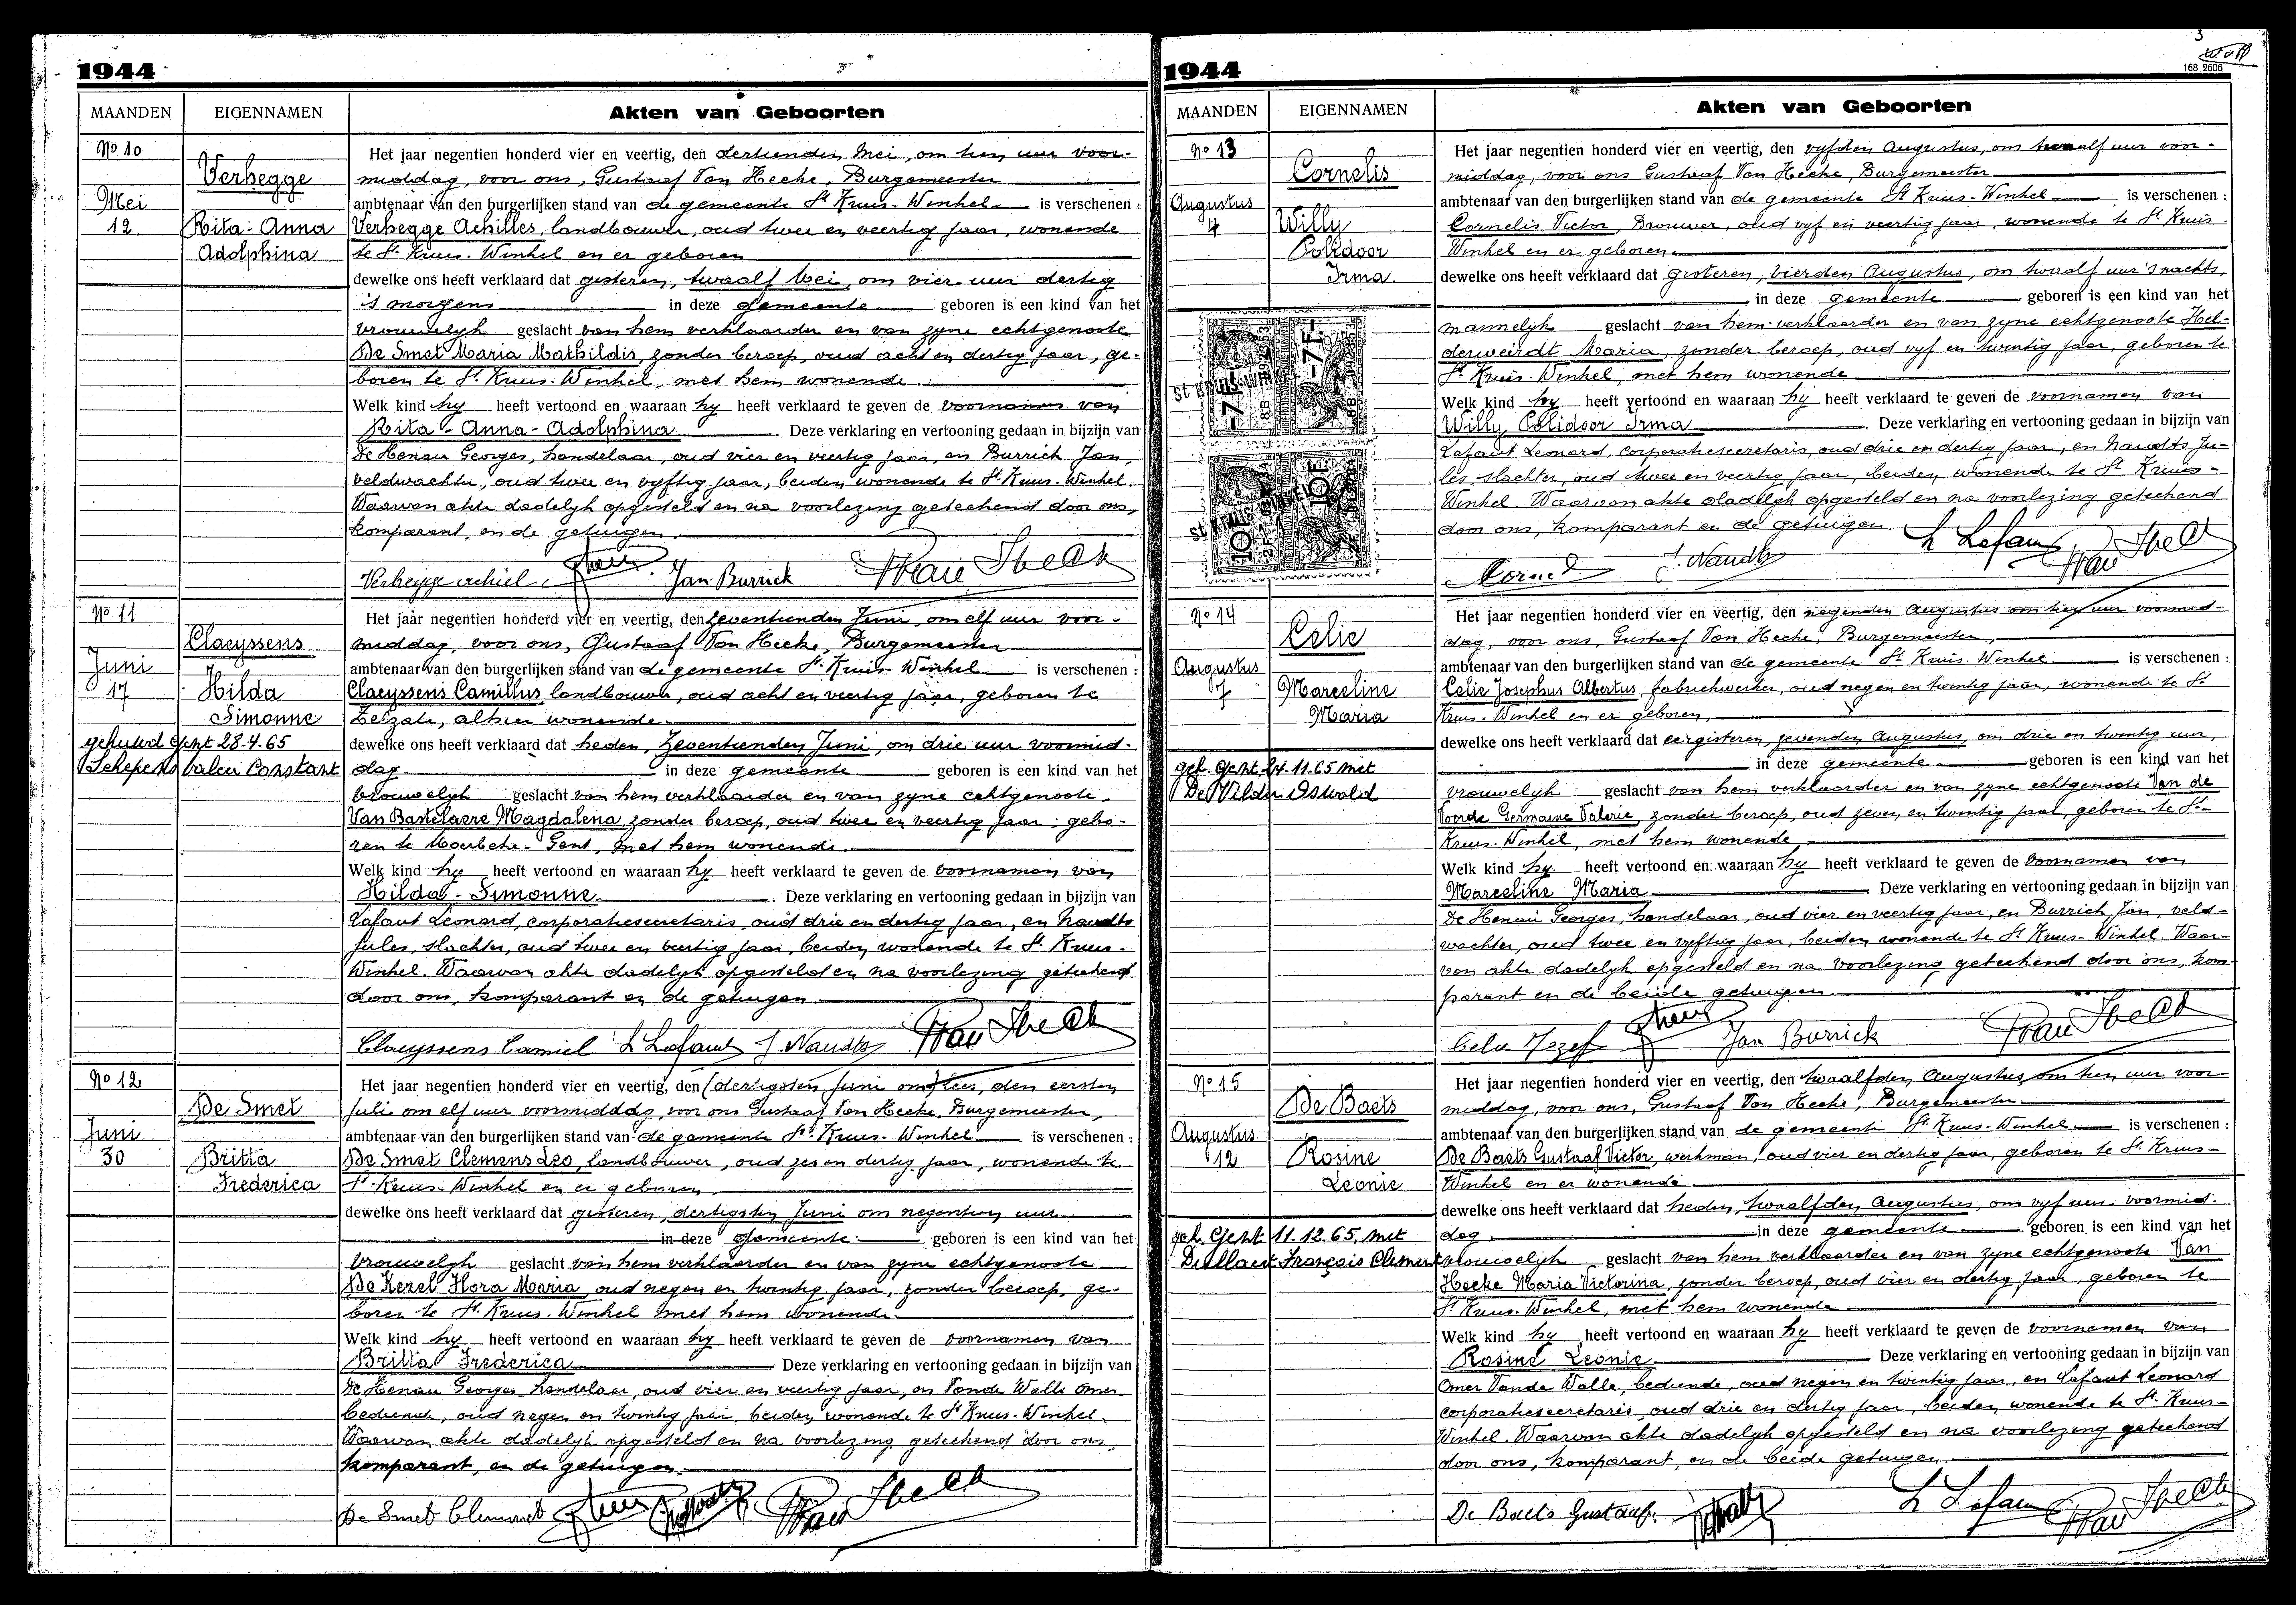 1944
MAANDEN EIGENNAMEN Akten van Geboorten
No 10
Verhegge
Mei
12.
Rita-Anna
Adolphina
Het jaar negentien honderd vier en veertig, den dertienden Mei, om tien uur voor-
middag, voor ons, Gustaaf Van Hecke, Burgemeester
ambtenaar van den burgerlijken stand van de gemeente St Kruis-Winkel is verschenen :
Verhegge Achilles, landbouwer, oud twee en veertig jaar, wonende
te St. Kruis-Winkel en er geboren
dewelke ons heeft verklaard dat gisteren, twaalf Mei, om vier uur dertig
's morgens in deze gemeente geboren is een kind van het
vrouwelyk geslacht van hem verklaarder en van zyne echtgenoote
De Smet Maria Mathildis, zonder beroep, oud acht en dertig jaar, ge-
boren te St. Kruis-Winkel, met hem wonende.
Welk kind hy heeft vertoond en waaraan hy heeft verklaard te geven de voornamen van
Rita-Anna-Adolphina. Deze verklaring en vertooning gedaan in bijzijn van
De Henau Georges, handelaar, oud vier en veertig jaar, en Burrick Jan,
veldwachter, oud twee en vyftig jaar, beiden wonende te St. Kruis-Winkel.
Waarvan akte dadelyk opgesteld en na voorlezing geteekend door ons,
komparant, en de getuigen.
Verhegge achiel Jan Burrick
No 11
Claeyssens
Juni
17
Hilda
Simonne
gehuwd Gent 28.4.65
Schepens Valeer Constant
Het jaar negentien honderd vier en veertig, den zeventienden Juni, om elf uur voor-
middag, voor ons, Gustaaf Van Hecke, Burgemeester
ambtenaar van den burgerlijken stand van de gemeente St. Kruis-Winkel is verschenen :
Claeyssens Camillus, landbouwer, oud acht en veertig jaar, geboren te
Zelzate, alhier wonende.
dewelke ons heeft verklaard dat heden, zeventienden Juni, om drie uur voormid-
dag in deze gemeente geboren is een kind van het
vrouwelyk geslacht van hem verklaarder en van zyne echtgenoote
Van Bastelaere Magdalena, zonder beroep, oud twee en veertig jaar, gebo-
ren te Moerbeke-Gent, met hem wonende.
Welk kind hy heeft vertoond en waaraan hy heeft verklaard te geven de voornamen van
Hilda-Simonne. Deze verklaring en vertooning gedaan in bijzijn van
Lafaut Leonard, corporatiesecretaris, oud drie en dertig jaar, en Naudts
Jules, slachter, oud twee en veertig jaar, beiden wonende te St. Kruis-
Winkel. Waarvan akte dadelyk opgesteld en na voorlezing geteekend
door ons, komparant en de getuigen.
Claeyssens Camiel L Lafaut J. Naudts
No 12
De Smet
Juni
30
Britta
Frederica
Het jaar negentien honderd vier en veertig, den (dertigsten Juni om) lees, den eersten
Juli om elf uur voormiddag, voor ons Gustaaf Van Hecke, Burgemeester,
ambtenaar van den burgerlijken stand van de gemeente St. Kruis-Winkel is verschenen :
De Smet Clemens Leo, landbouwer, oud zes en dertig jaar, wonende te
St. Kruis-Winkel en er geboren.
dewelke ons heeft verklaard dat gisteren, dertigsten Juni om negentien uur
in deze gemeente geboren is een kind van het
vrouwelyk geslacht van hem verklaarder en van zyne echtgenoote
De Kezel Flora Maria, oud negen en twintig jaar, zonder beroep, ge-
boren te St. Kruis-Winkel met hem wonende
Welk kind hy heeft vertoond en waaraan hy heeft verklaard te geven de voornamen van
Britta Frederica Deze verklaring en vertooning gedaan in bijzijn van
De Henau Georges, handelaar, oud vier en veertig jaar, en Vande Walle Omer
bediende, oud negen en twintig jaar, beiden wonende te St Kruis-Winkel.
Waarvan akte dadelyk opgesteld en na voorlezing geteekend door ons,
komparant, en de getuigen.
De Smet Clement
3
168 2606
1944
MAANDEN EIGENNAMEN Akten van Geboorten
No 13
Cornelis
Augustus
4
Willy
Polidoor
Irma
Het jaar negentien honderd vier en veertig, den vyfden Augustus, om twaalf uur voor-
middag, voor ons Gustaaf Van Hecke, Burgemeester
ambtenaar van den burgerlijken stand van de gemeente St Kruis-Winkel is verschenen :
Cornelis Victor, Brouwer, oud vyf en veertig jaar, wonende te St Kruis-
Winkel en er geboren.
dewelke ons heeft verklaard dat gisteren, vierden Augustus, om twaalf uur 's nachts,
in deze gemeente geboren is een kind van het
mannelyk geslacht van hem verklaarder en van zyne echtgenoote Hel-
derweirdt Maria, zonder beroep, oud vyf en twintig jaar, geboren te
St. Kruis-Winkel, met hem wonende
Welk kind hy heeft vertoond en waaraan hy heeft verklaard te geven de voornamen van
Willy Polidoor Irma. Deze verklaring en vertooning gedaan in bijzijn van
Lafaut Leonard, corporatiesecretaris, oud drie en dertig jaar, en Naudts Ju-
les slachter, oud twee en veertig jaar, beiden wonende te St Kruis-
Winkel. Waarvan akte dadelyk opgesteld en na voorlezing geteekend
door ons, komparant en de getuigen.
J. Naudts L Lafaut
St KRUIS-WINKEL
7F
St KRUIS-WINKEL
10F
No 14
Celie
Augustus
7
Marceline
Maria
geh. Gent 24.11.65 met
De Wilder Oswald
Het jaar negentien honderd vier en veertig, den negenden Augustus om tien uur voormid-
dag, voor ons, Gustaaf Van Hecke, Burgemeester,
ambtenaar van den burgerlijken stand van de gemeente St Kruis-Winkel is verschenen :
Celie Josephus Albertus, fabriekwerker, oud negen en twintig jaar, wonende te St
Kruis-Winkel en er geboren,
dewelke ons heeft verklaard dat eergisteren, zevenden Augustus, om drie en twintig uur,
in deze gemeente geboren is een kind van het
vrouwelyk geslacht van hem verklaarder en van zyne echtgenoote Van de
Voorde Germaine Valerie, zonder beroep, oud zeven en twintig jaar, geboren te St-
Kruis-Winkel, met hem wonende,
Welk kind hy heeft vertoond en waaraan hy heeft verklaard te geven de voornamen van
Marceline Maria Deze verklaring en vertooning gedaan in bijzijn van
De Henau Georges, handelaar, oud vier en veertig jaar, en Burrick Jan, veld-
wachter, oud twee en vyftig jaar, beiden wonende te St Kruis-Winkel. Waar-
van akte dadelyk opgesteld en na voorlezing geteekend door ons, kom-
parant en de beide getuigen.
Celie Jozef Jan Burrick
No 15
De Baets
Augustus
12
Rosine
Leonie
geh. Gent 11.12.65 met
François Clement
Het jaar negentien honderd vier en veertig, den twaalfden Augustus, om tien uur voor-
middag, voor ons, Gustaaf Van Hecke, Burgemeester
ambtenaar van den burgerlijken stand van de gemeente St Kruis-Winkel is verschenen :
De Baets Gustaaf Victor, werkman, oud vier en dertig jaar, geboren te St. Kruis-
Winkel en er wonende
dewelke ons heeft verklaard dat heden, twaalfden Augustus, om vyf uur voormid-
dag in deze gemeente geboren is een kind van het
vrouwelyk geslacht van hem verklaarder en van zyne echtgenoote Van
Hecke Maria Victorina, zonder beroep, oud vier en dertig jaar, geboren te
St. Kruis-Winkel, met hem wonende
Welk kind hy heeft vertoond en waaraan hy heeft verklaard te geven de voornamen van
Rosine Leonie Deze verklaring en vertooning gedaan in bijzijn van
Omer Vande Walle, bediende, oud negen en twintig jaar, en Lafaut Leonard
corporatiesecretaris oud drie en dertig jaar, beiden wonende te St. Kruis-
Winkel. Waarvan akte dadelyk opgesteld en na voorlezing geteekend
door ons, komparant, en de beide getuigen.
De Baets Gustaaf. L Lafaut